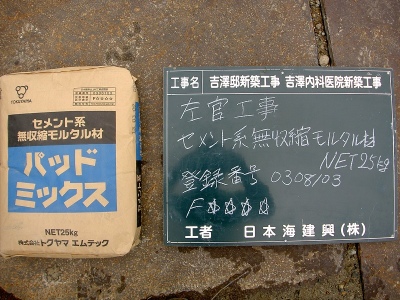 TOKUYAMA
セメント系
無収縮モルタル材
パッド
ミックス
NET25kg
株式会社トクヤマ エムテック
工事名 吉澤邸新築工事 吉澤内科医院新築工事
左官工事
セメント系無収縮モルタル材
NET25kg
登録番号 0308103
F☆☆☆☆
工者 日本海建興(株)